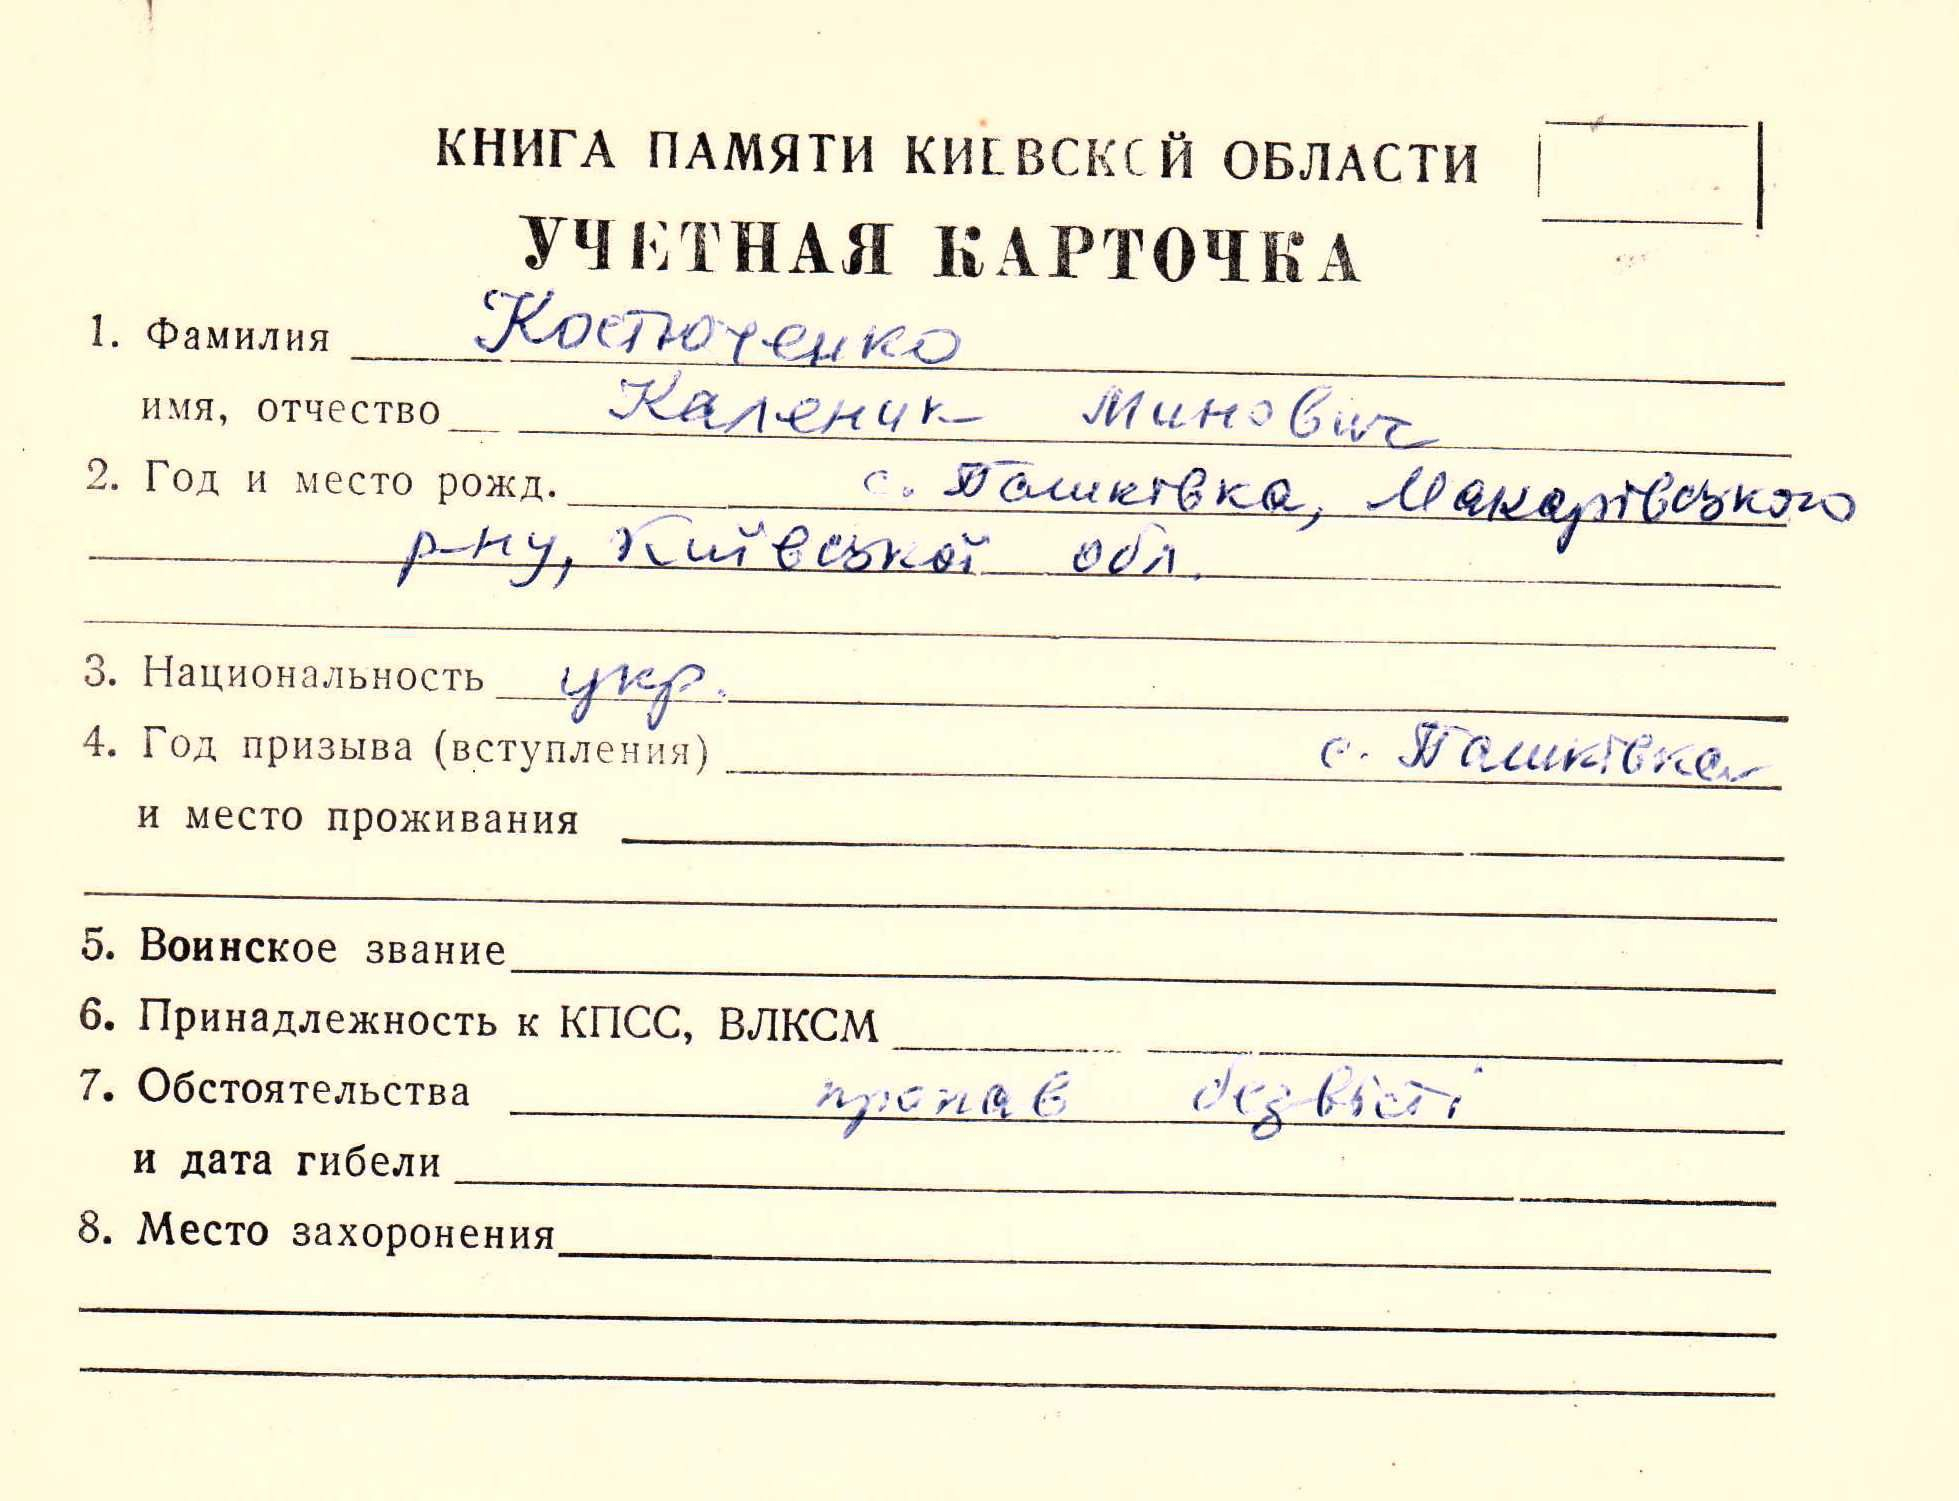 КНИГА ПАМЯТИ КИЕВСКОЙ ОБЛАСТИ
УЧЕТНАЯ КАРТОЧКА
1. Фамилия Костюченко
имя, отчество Каленик Минович
2. Год и место рожд. с. Пашківка, Макарівського
р-ну, Київської обл.
3. Национальность укр.
4. Год призыва (вступления) с. Пашківка
и место проживания
5. Воинское звание
6. Принадлежность к КПСС, ВЛКСМ
7. Обстоятельства пропав безвісті
и дата гибели
8. Место захоронения